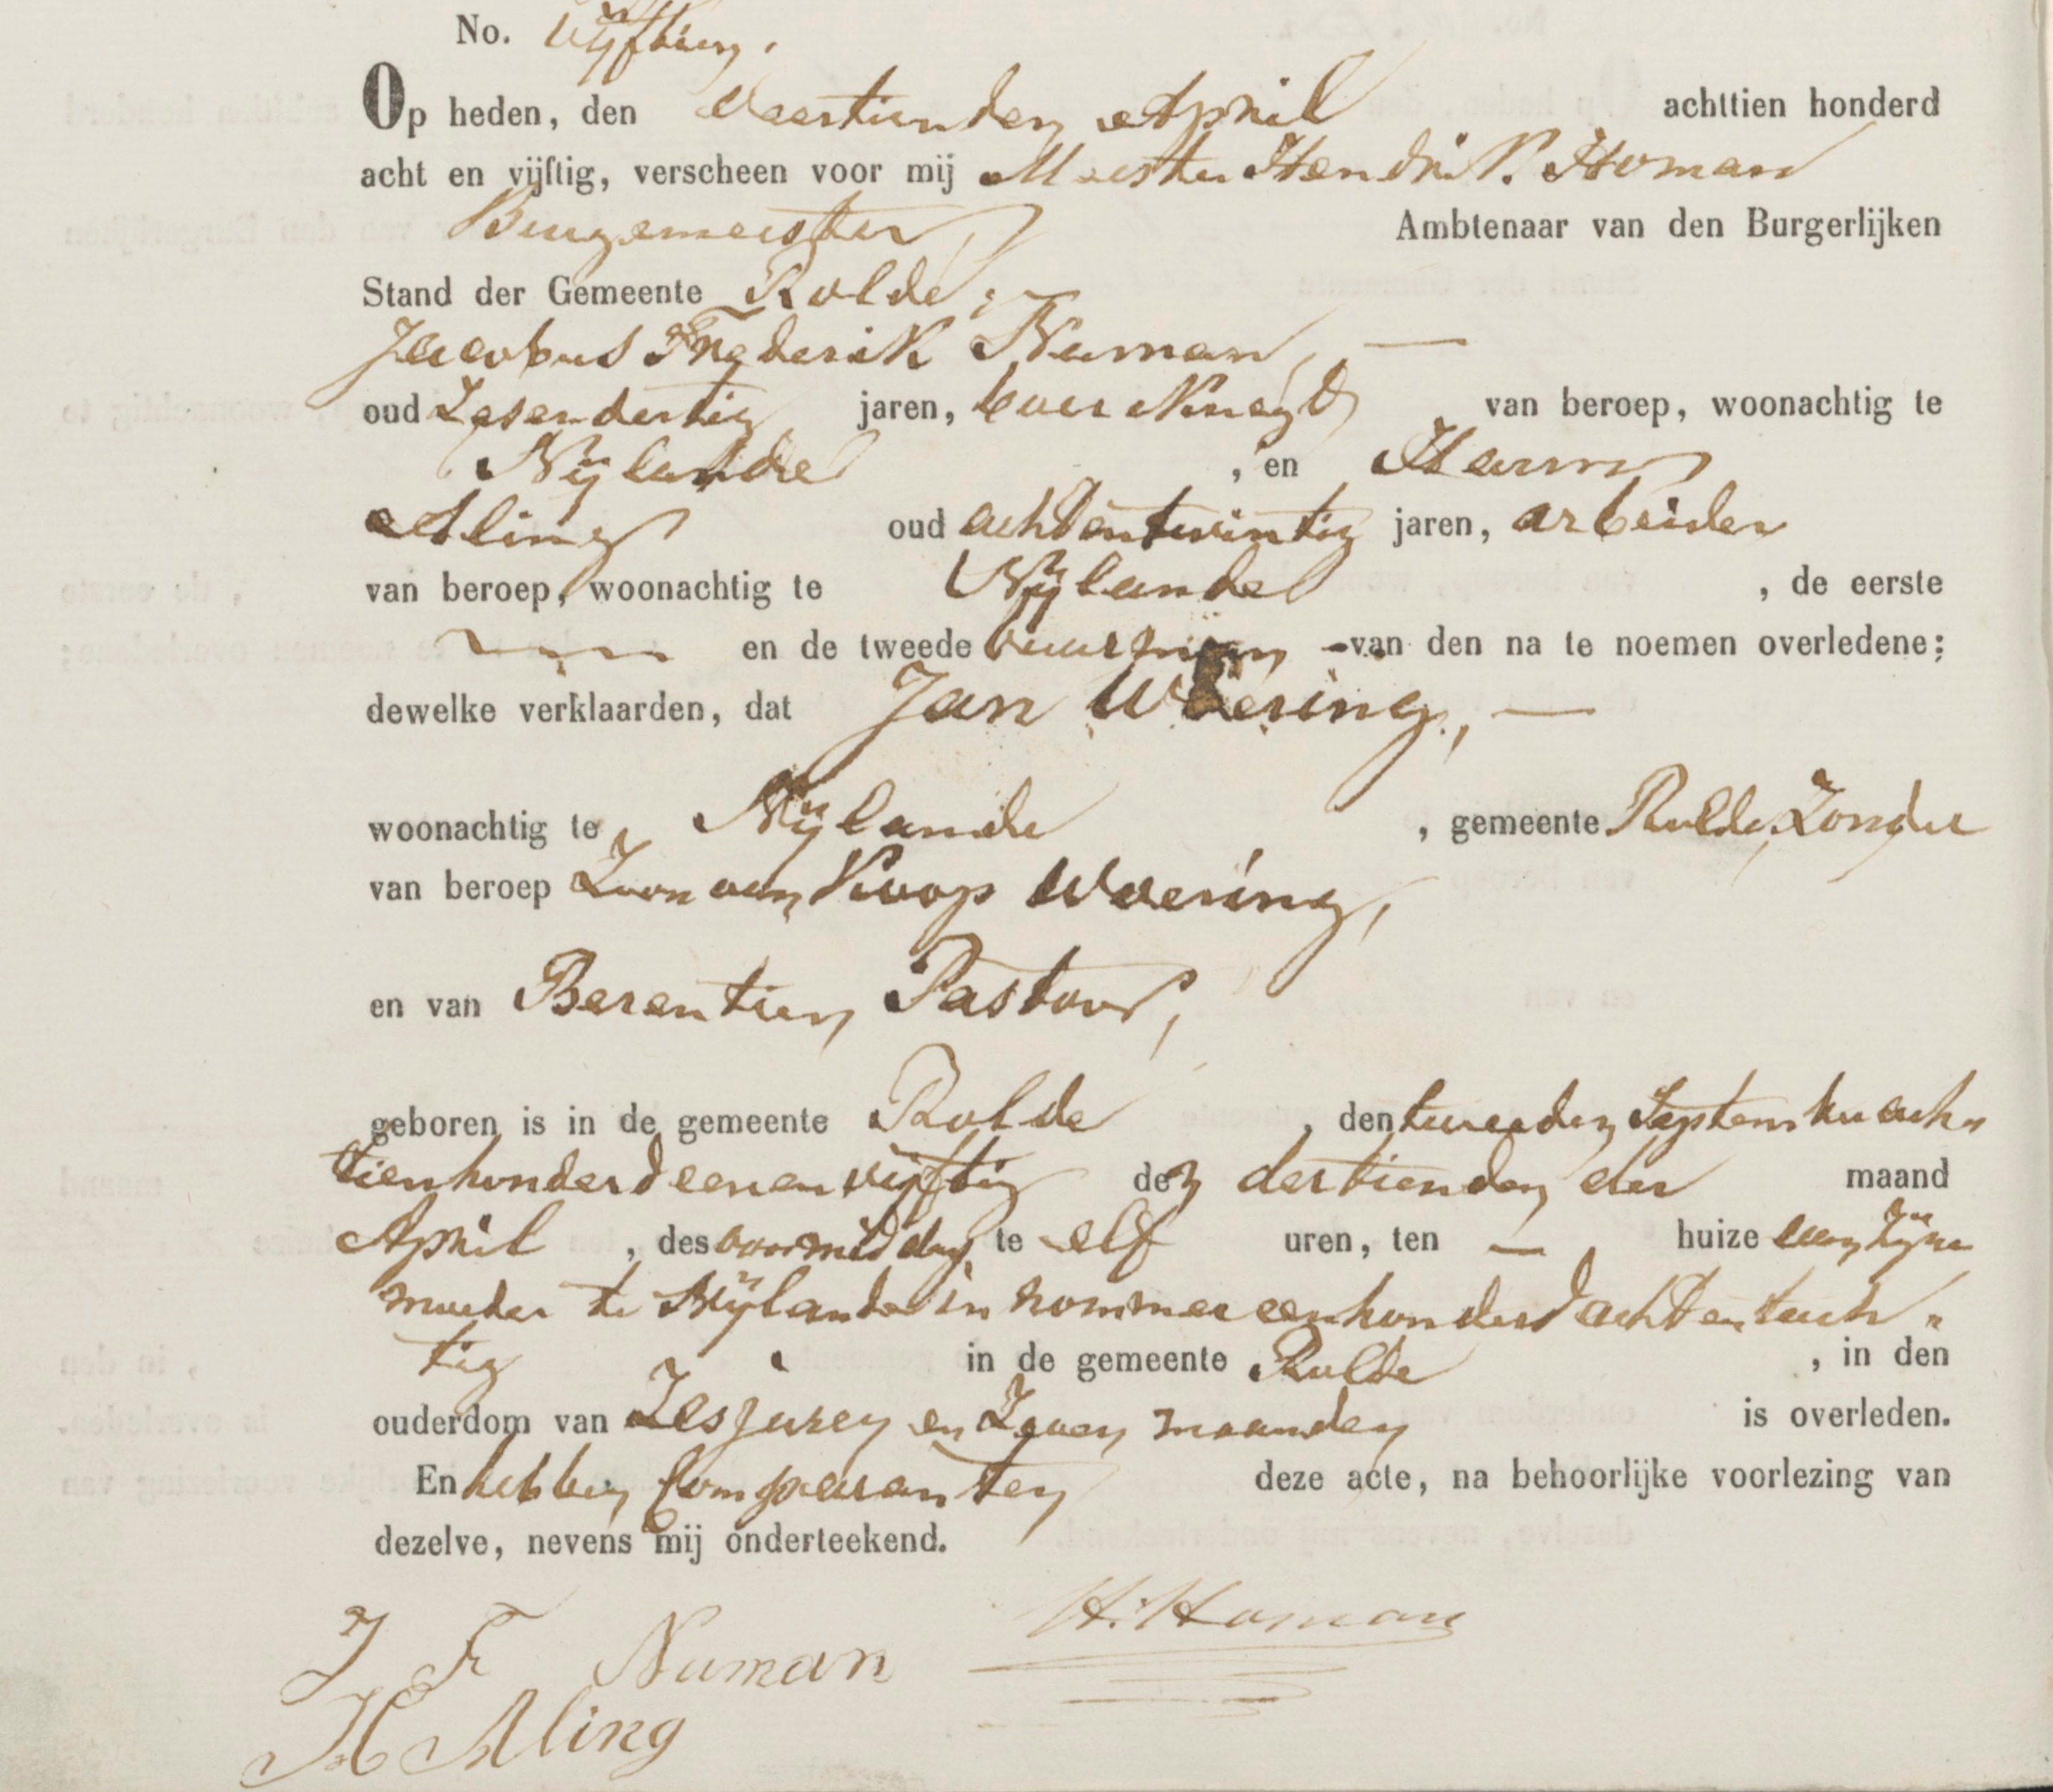 No. Vijftien,
Op heden, den Veertienden April achttien honderd
acht en vijftig, verscheen voor mij Meester Hendrik Homan
Burgemeester, Ambtenaar van den Burgerlijken
Stand der Gemeente Rolde;
Jacobus Frederik Numan, —
oud Zesendertig jaren, boerKnegt van beroep, woonachtig te
Nijlande, en Harm
Aling oud achtentwintig jaren, arbeider
van beroep, woonachtig te Nijlande, de eerste
— en de tweede buurman van den na te noemen overledene;
dewelke verklaarden, dat Jan Woering, —
woonachtig te Nijlande, gemeente Rolde, Zonder
van beroep Zoon van Koop Woering,
en van Berentien Pastoor,
geboren is in de gemeente Rolde, den tweeden September ach„
tienhonderd eenenvijftig den dertienden der maand
April, des voormiddag te elf uren, ten — huize van zijne
moeder te Nijlande in nommer eenhonderd achtentach„
tig in de gemeente Rolde, in den
ouderdom van Zes jaren en Zeven maanden is overleden.
En hebben Comparanten deze acte, na behoorlijke voorlezing van
dezelve, nevens mij onderteekend.
H. Homan
J F Numan
H Aling